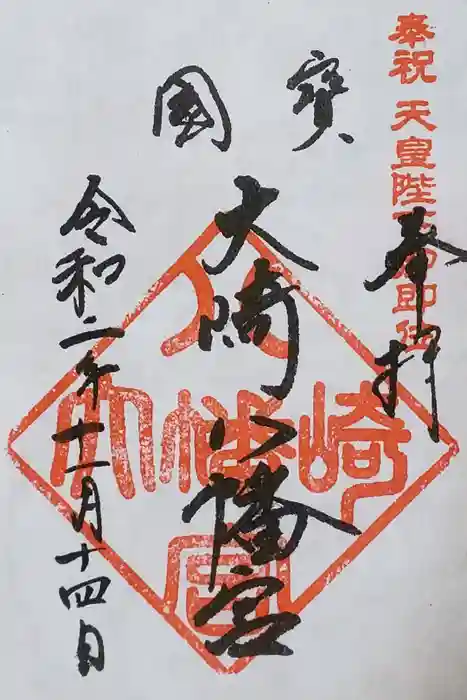 奉祝 天皇陛下御即位
奉拝
寶國
大崎八幡宮
令和二年十一月十四日
大崎八幡宮